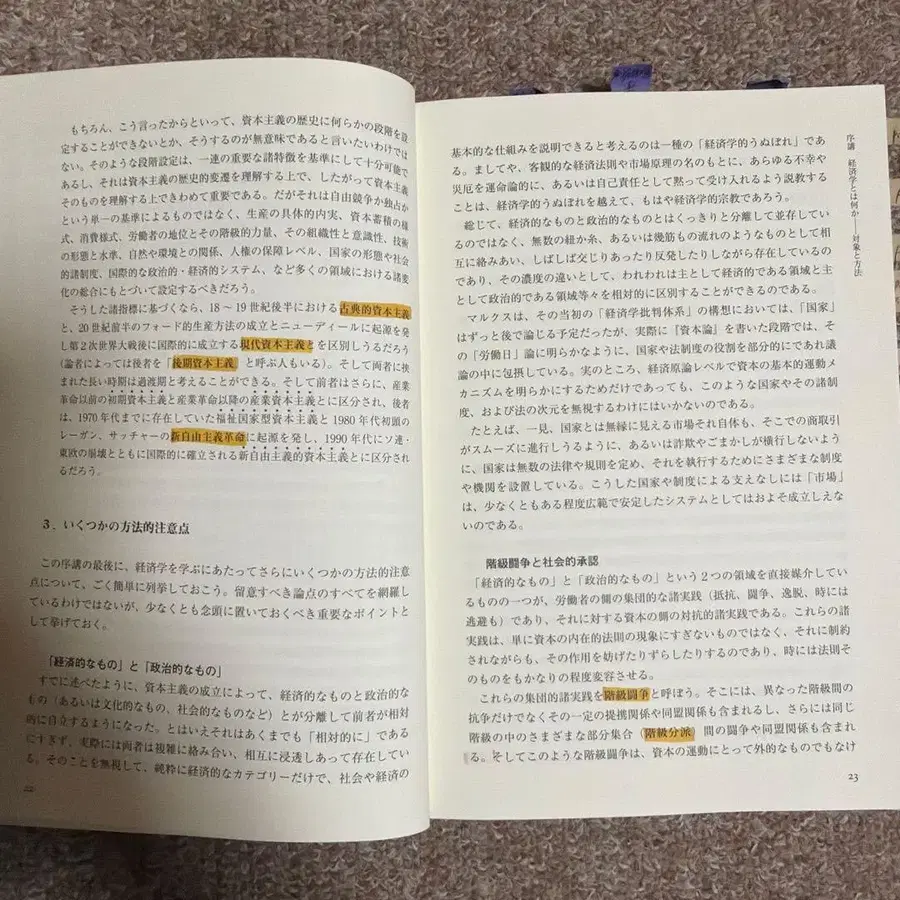 もちろん、こう言ったからといって、資本主義の歴史に何らかの段階を設
定することができないとか、そうするのが無意味であると言いたいわけでは
ない。そのような段階設定は、一連の重要な諸特徴を基準にして十分可能で
あるし、それは資本主義の歴史的変遷を理解する上で、したがって資本主義
そのものを理解する上できわめて重要である。だがそれは自由競争か独占か
という単一の基準によるものではなく、生産の具体的内実、資本蓄積の様
式、消費様式、労働者の地位とその階級的力量、その組織性と意識性、技術
の形態と水準、自然や環境との関係、人権の保障レベル、国家の形態や社会
的諸制度、国際的な政治的・経済的システム、など多くの領域における諸変
化の総合にもとづいて設定するべきだろう。
そうした諸指標に基づくなら、18～19世紀後半における古典的資本主義
と、20世紀前半のフォード的生産方法の成立とニューディールに起源を発
し第2次世界大戦後に国際的に成立する現代資本主義とを区別しうるだろう
（論者によっては後者を「後期資本主義」と呼ぶ人もいる）。そして両者に挟
まれた長い時期は過渡期と考えることができる。そして前者はさらに、産業
革命以前の初期資本主義と産業革命以降の産業資本主義とに区分され、後者
は、1970年代までに存在していた福祉国家型資本主義と1980年代初頭の
レーガン、サッチャーの新自由主義革命に起源を発し、1990年代にソ連・
東欧の崩壊とともに国際的に確立される新自由主義的資本主義とに区分され
るだろう。
3．いくつかの方法的注意点
この序講の最後に、経済学を学ぶにあたってさらにいくつかの方法的注意
点について、ごく簡単に列挙しておこう。留意すべき論点のすべてを網羅し
ているわけではないが、少なくとも念頭に置いておくべき重要なポイントと
して挙げておく。
「経済的なもの」と「政治的なもの」
すでに述べたように、資本主義の成立によって、経済的なものと政治的な
もの（あるいは文化的なもの、社会的なものなど）とが分離して前者が相対
的に自立するようになった。とはいえそれはあくまでも「相対的に」である
にすぎず、実際には両者は複雑に絡み合い、相互に浸透しあって存在してい
る。そのことを無視して、純粋に経済的なカテゴリーだけで、社会や経済の
22
基本的な仕組みを説明できると考えるのは一種の「経済学的うぬぼれ」であ
る。ましてや、客観的な経済法則や市場原理の名のもとに、あらゆる不幸や
災厄を運命論的に、あるいは自己責任として黙って受け入れるよう説教する
ことは、経済学的うぬぼれを越えて、もはや経済学的宗教であろう。
総じて、経済的なものと政治的なものとはくっきりと分離して並存してい
るのではなく、無数の紐か糸、あるいは幾筋もの流れのようなものとして相
互に絡みあい、しばしば交じりあったり反発したりしながら存在しているの
であり、その濃度の違いとして、われわれは主として経済的である領域と主
として政治的である領域等々を相対的に区別することができるのである。
マルクスは、その当初の「経済学批判体系」の構想においては、「国家」
はずっと後で論じる予定だったが、実際に『資本論』を書いた段階では、そ
の「労働日」論に明らかなように、国家や法制度の役割を部分的にであれ議
論の中に包摂している。実のところ、経済原論レベルで資本の基本的運動メ
カニズムを明らかにするためだけであっても、このような国家やその諸制
度、および法の次元を無視するわけにはいかないのである。
たとえば、一見、国家とは無縁に見える市場それ自体も、そこでの商取引
がスムーズに進行しうるように、あるいは詐欺やごまかしが横行しないよう
に、国家は無数の法律や規則を定め、それを執行するためにさまざまな制度
や機関を設置している。こうした国家や制度による支えなしには「市場」
は、少なくともある程度広範で安定したシステムとしてはおよそ成立しえな
いのである。
階級闘争と社会的承認
「経済的なもの」と「政治的なもの」という2つの領域を直接媒介してい
るものの一つが、労働者の側の集団的な諸実践（抵抗、闘争、逸脱、時には
逃避も）であり、それに対する資本の側の対抗的諸実践である。これらの諸
実践は、単に資本の内在的法則の現象にすぎないものではなく、それに制約
されながらも、その作用を妨げたりずらしたりするのであり、時には法則そ
のものをもかなりの程度変容させる。
これらの集団的諸実践を階級闘争と呼ぼう。そこには、異なった階級間の
抗争だけでなくその一定の提携関係や同盟関係も含まれるし、さらには同じ
階級の中のさまざまな部分集合（階級分派）間の闘争や同盟関係も含まれ
る。そしてこのような階級闘争は、資本の運動にとって外的なものでもなけ
23
序講 経済学とは何か――対象と方法